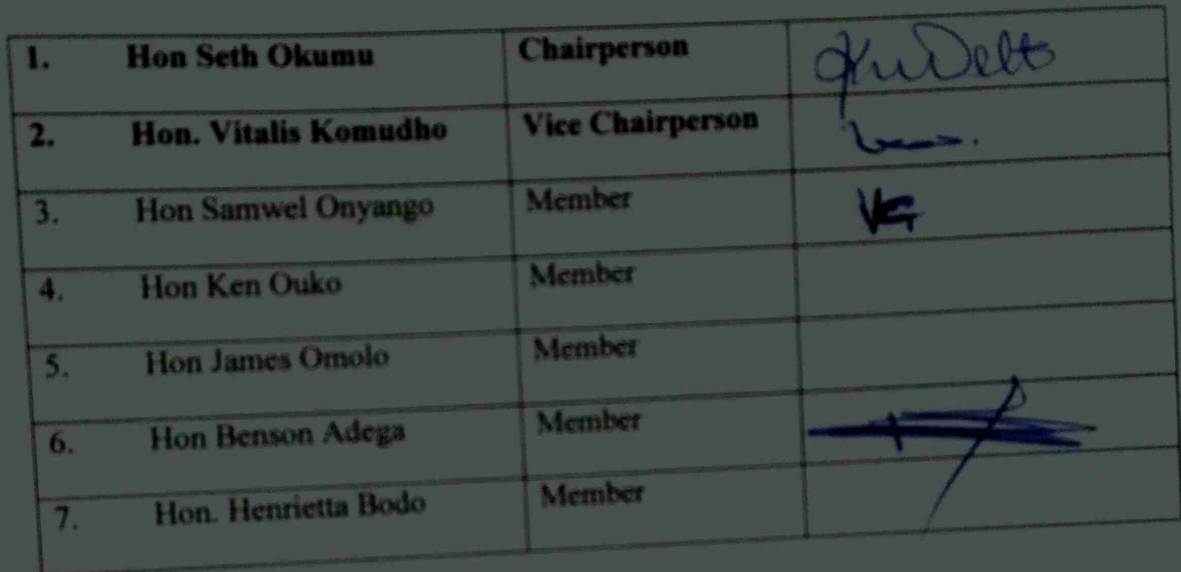 1. Hon Seth Okumu Chairperson
2. Hon. Vitalis Komudho Vice Chairperson
3. Hon Samwel Onyango Member
4. Hon Ken Ouko Member
5. Hon James Omolo Member
6. Hon Benson Adega Member
7. Hon. Henrietta Bodo Member